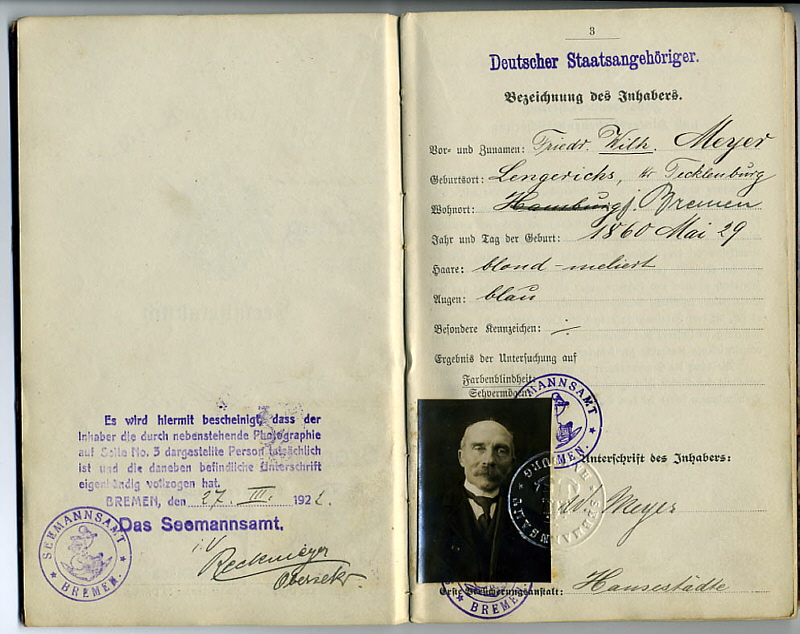 Es wird hiermit bescheinigt, dass der
Inhaber die durch nebenstehende Photographie
auf Seite No. 3 dargestellte Person tatsächlich
ist und die daneben befindliche Unterschrift
eigenhändig vollzogen hat.
BREMEN, den 27. III. 1922.
Das Seemannsamt.
i.V.
Reckmeyer
Obersekr.
SEEMANNSAMT
★ BREMEN. ★
3
Deutscher Staatsangehöriger.
Bezeichnung des Inhabers.
Vor- und Zunamen: Friedr. Wilh. Meyer
Geburtsort: Lengerichs, Kr Tecklenburg
Wohnort: Hamburg j. Bremen
Jahr und Tag der Geburt: 1860 Mai 29
Haare: blond-meliert
Augen: blau
Besondere Kennzeichen: ./.
Ergebnis der Untersuchung auf
Farbenblindheit:
Sehvermögen:
MANNSAMT
BREMEN. ★
Unterschrift des Inhabers:
Meyer
HAMBURG
Erste Versicherungsanstalt: Hansestädte
★ BREMEN.